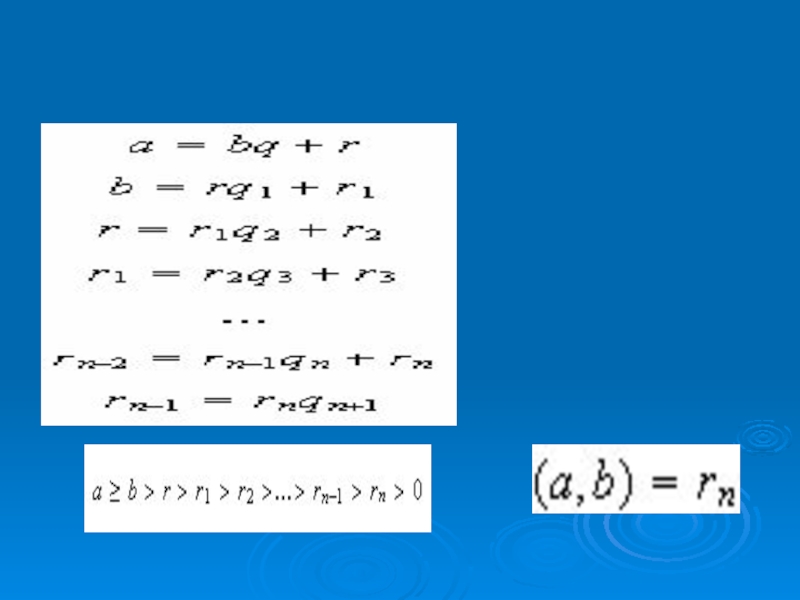 a = bq + r
b = rq₁ + r₁
r = r₁q₂ + r₂
r₁ = r₂q₃ + r₃
...
rₙ₋₂ = rₙ₋₁qₙ + rₙ
rₙ₋₁ = rₙqₙ₊₁
a ≥ b > r > r₁ > r₂ >...> rₙ₋₁ > rₙ > 0
(a,b) = rₙ